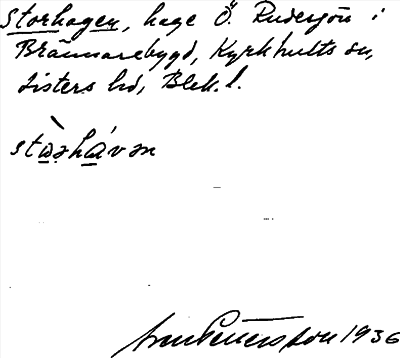 Storhagen, hage Ö. Rudesjön i
Brännarebygd, Kyrkhults sn,
Listers hd, Blek. l.
stωərhávən
Pettersson 1936